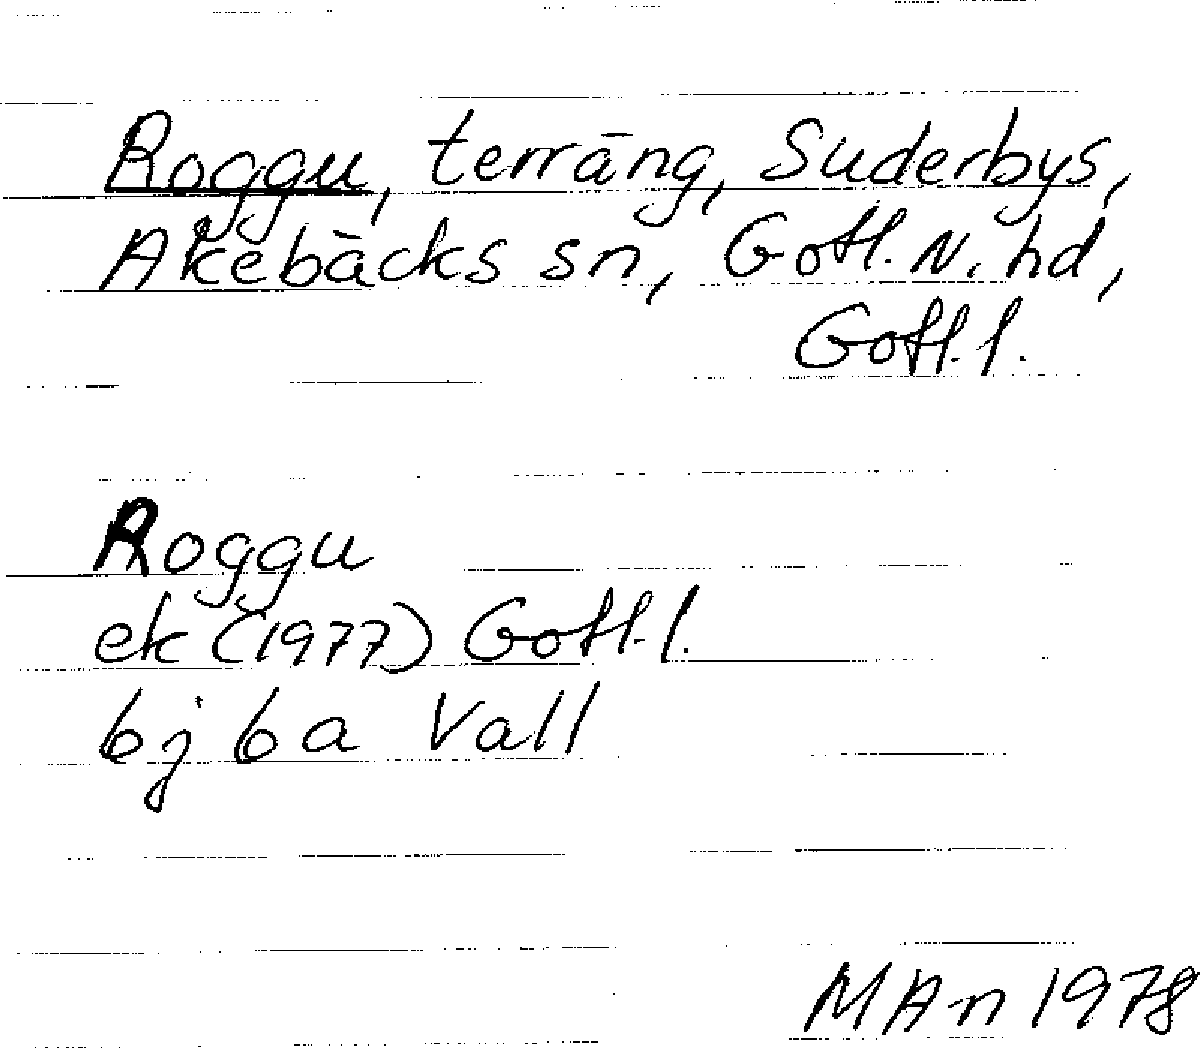 Roggu, terräng, Suderbys,
Akebäcks sn, Gotl. N. hd,
Gotl. l.
Roggu
ek (1977) Gotl. l.
bj ba Vall
MAn 1978